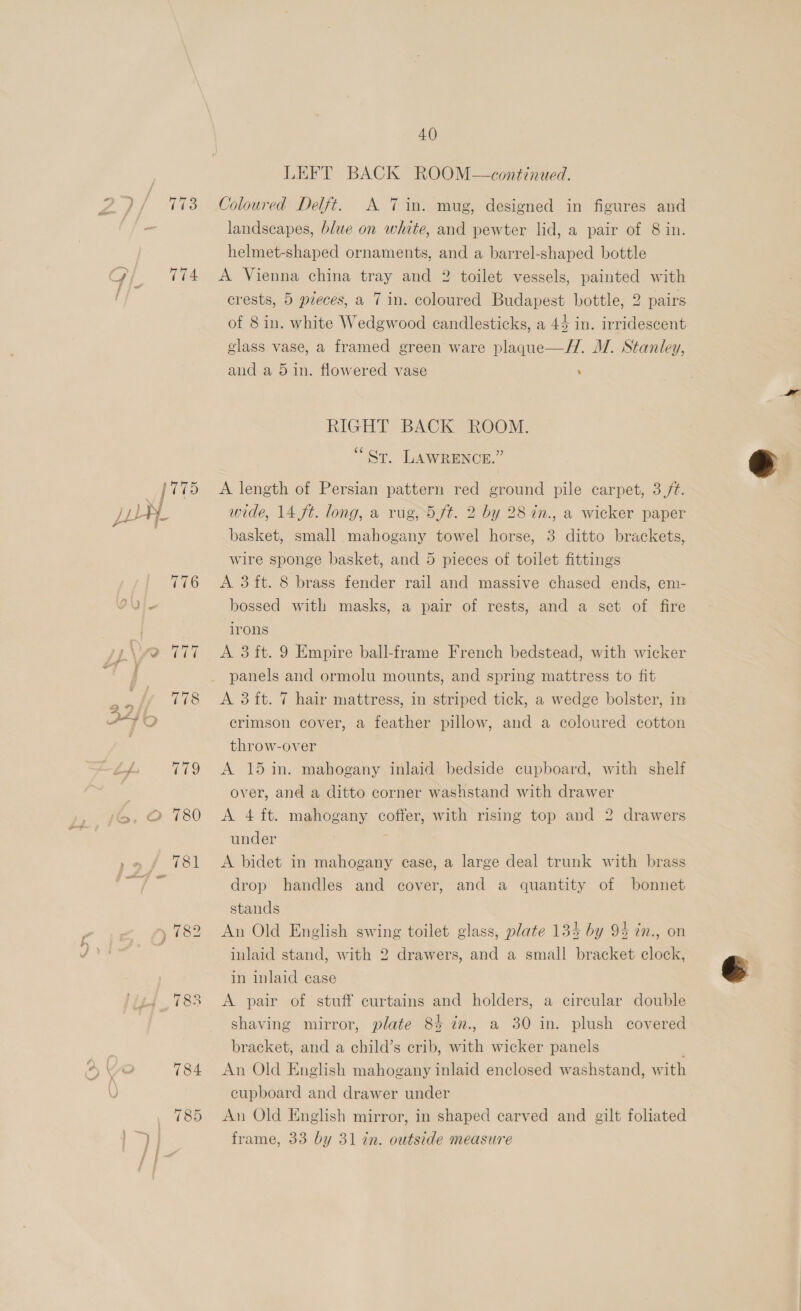 40
LEFT BACK ROOM—continued.
773 Coloured Delft. A 7 in. mug, designed in figures and
landscapes, blue on white, and pewter lid, a pair of 8 in.
helmet-shaped ornaments, and a barrel-shaped bottle
774 A Vienna china tray and 2 toilet vessels, painted with
crests, 5 pieces, a 7 in. coloured Budapest bottle, 2 pairs
of 8 in. white Wedgwood candlesticks, a 4½ in. irridescent
glass vase, a framed green ware plaque—H. M. Stanley,
and a 5 in. flowered vase
RIGHT BACK ROOM.
“St. Lawrence.”
775 A length of Persian pattern red ground pile carpet, 3 ft.
wide, 14 ft. long, a rug, 5 ft. 2 by 28 in., a wicker paper
basket, small mahogany towel horse, 3 ditto brackets,
wire sponge basket, and 5 pieces of toilet fittings
776 A 3 ft. 8 brass fender rail and massive chased ends, em-
bossed with masks, a pair of rests, and a set of fire
irons
777 A 3 ft. 9 Empire ball-frame French bedstead, with wicker
panels and ormolu mounts, and spring mattress to fit
778 A 3 ft. 7 hair mattress, in striped tick, a wedge bolster, in
crimson cover, a feather pillow, and a coloured cotton
throw-over
779 A 15 in. mahogany inlaid bedside cupboard, with shelf
over, and a ditto corner washstand with drawer
780 A 4 ft. mahogany coffer, with rising top and 2 drawers
under
781 A bidet in mahogany case, a large deal trunk with brass
drop handles and cover, and a quantity of bonnet
stands
782 An Old English swing toilet glass, plate 13½ by 9½ in., on
inlaid stand, with 2 drawers, and a small bracket clock,
in inlaid case
783 A pair of stuff curtains and holders, a circular double
shaving mirror, plate 8½ in., a 30 in. plush covered
bracket, and a child's crib, with wicker panels
784 An Old English mahogany inlaid enclosed washstand, with
cupboard and drawer under
785 An Old English mirror, in shaped carved and gilt foliated
frame, 33 by 31 in. outside measure